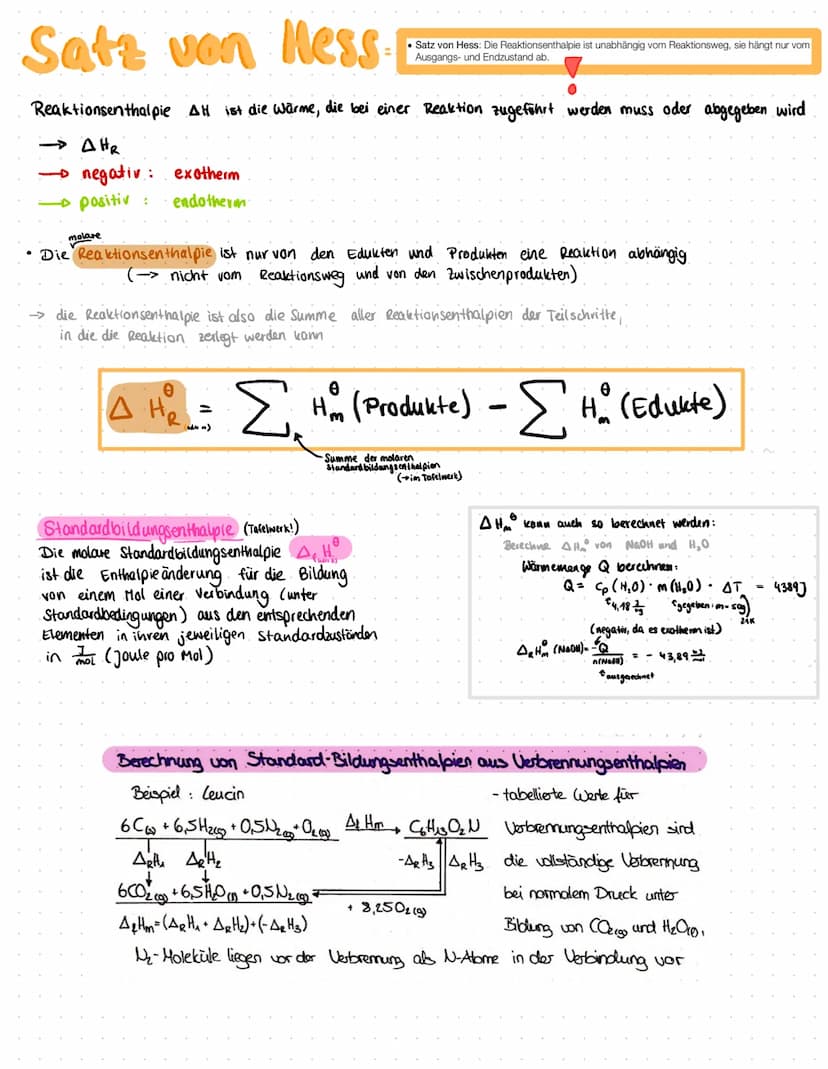 Satz von Hess =
• Satz von Hess: Die Reaktionsenthalpie ist unabhängig vom Reaktionsweg, sie hängt nur vom
Ausgangs- und Endzustand ab.
!
Reaktionsenthalpie ΔH ist die Wärme, die bei einer Reaktion zugeführt werden muss oder abgegeben wird
→ ΔH_R
→ negativ : exotherm
→ positiv : endotherm
molare
• Die Reaktionsenthalpie ist nur von den Edukten und Produkten eine Reaktion abhängig
(→ nicht vom Reaktionsweg und von den Zwischenprodukten)
→ die Reaktionsenthalpie ist also die Summe aller Reaktionsenthalpien der Teilschritte,
in die die Reaktion zerlegt werden kann
Δ H_R^θ = Σ H_m^θ (Produkte) − Σ H_m^θ (Edukte)
Summe der molaren
Standardbildungsenthalpien
(→ im Tafelwerk)
Standardbildungsenthalpie (Tafelwerk!)
Die molare Standardbildungsenthalpie Δ_f H^θ
ist die Enthalpieänderung für die Bildung
von einem Mol einer Verbindung (unter
Standardbedingungen) aus den entsprechenden
Elementen in ihren jeweiligen Standardzuständen
in J/mol (Joule pro Mol)
ΔH_m^θ kann auch so berechnet werden:
Berechne ΔH_m^θ von NaOH und H₂O
Wärmemenge Q berechnen:
Q = c_p (H₂O) · m(H₂O) · ΔT = 4389J
4,18 gegeben: m = 50g 21K
(negativ, da es exotherm ist)
Δ_R H_m^θ (NaOH) = -Q / n(NaOH) = - 43,89 kJ/mol
ausgerechnet
Berechnung von Standard-Bildungsenthalpien aus Verbrennungsenthalpien
Beispiel : Leucin
6C(s) + 6,5H₂(g) + 0,5N₂(g) + O₂(g) Δ_f H_m → C₆H₁₃O₂N
Δ_R H₁ Δ_R H₂ -Δ_R H₃ Δ_R H₃
6CO₂(g) + 6,5H₂O(l) + 0,5N₂(g)
+ 8,25O₂(g)
Δ_f H_m = (Δ_R H₁ + Δ_R H₂) + (-Δ_R H₃)
- tabellierte Werte für
Verbrennungsenthalpien sind
die vollständige Verbrennung
bei normalem Druck unter
Bildung von CO₂(g) und H₂O(l),
N₂-Moleküle liegen vor der Verbrennung als N-Atome in der Verbindung vor